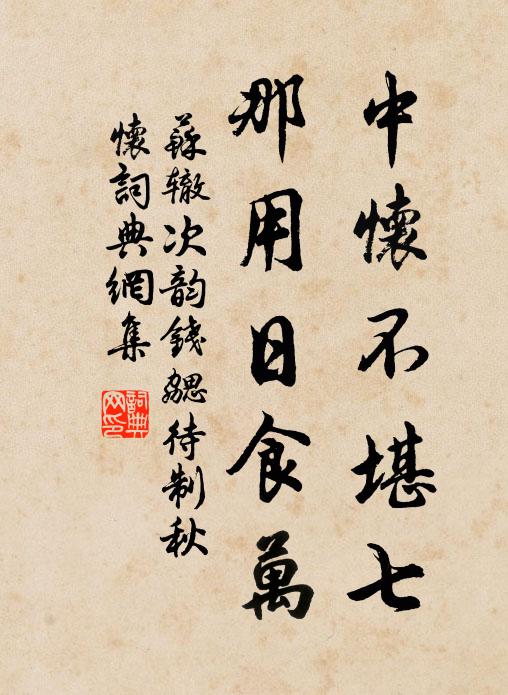 中懷不堪七
那用日食萬
蘇轍次韵錢勰待制秋
懷詞典網集
詞典网印